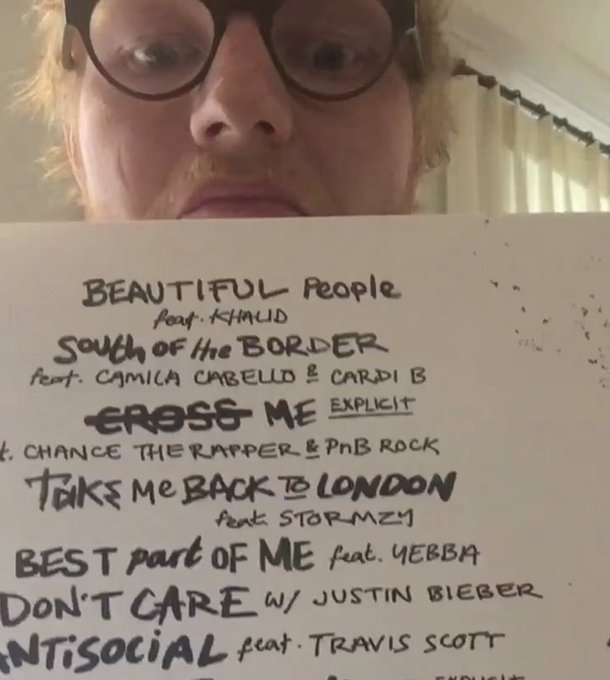 BEAUTIFUL People
feat. KHALID
South OF the BORDER
feat. CAMILA CABELLO & CARDI B
CROSS ME EXPLICIT
t. CHANCE THE RAPPER & PnB ROCK
TAKE Me BACK TO LONDON
feat. STORMZY
BEST part OF ME feat. YEBBA
DON'T CARE w/ JUSTIN BIEBER
ANTISOCIAL feat. TRAVIS SCOTT